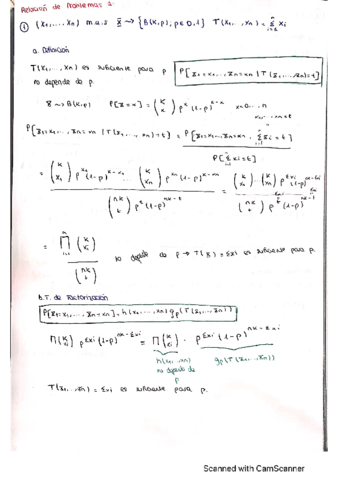 Relación de Problemas 2.
① (X₁,..., Xn) m.a.s X → {B(k,p); p∈0,1} T(X₁,...,Xn) = Σ Xi
a. Definición
T(X₁,...,Xn) es suficiente para p
no depende de p.
P[X₁=x₁,...,Xn=xn | T(X₁,...,Xn)=t]
X ~ B(k,p) P[X=x] = (k x) p^x (1-p)^(k-x) x=0...n
P[X₁=x₁,..., Xn=xn | T(X₁,...,Xn)=t] = P[X₁=x₁...Xn=xn, Σ Xi=t] / P[Σ Xi=t]
= (k x₁) p^x₁ (1-p)^(k-x₁) ... (k xn) p^xn (1-p)^(k-xn) / (nk t) p^t (1-p)^(nk-t) = (k x₁)...(k xn) p^Σxi (1-p)^(nk-Σxi) / (nk t) p^t (1-p)^(nk-t)
= Π (k xi) / (nk t) no depende de p → T(X) = Σxi es suficiente para p.
b. T. de Factorización
P[X₁=x₁,..., Xn=xn] = h(x₁,...,xn) gp(T(x₁,...,xn))
Π(k xi) p^Σxi (1-p)^(nk-Σxi) = Π(k xi) · p^Σxi (1-p)^(nk-Σxi)
h(x₁,...,xn) gp(T(x₁,...,xn))
no depende de
p
T(X₁,...,Xn) = Σxi es suficiente para p.
Scanned with CamScanner